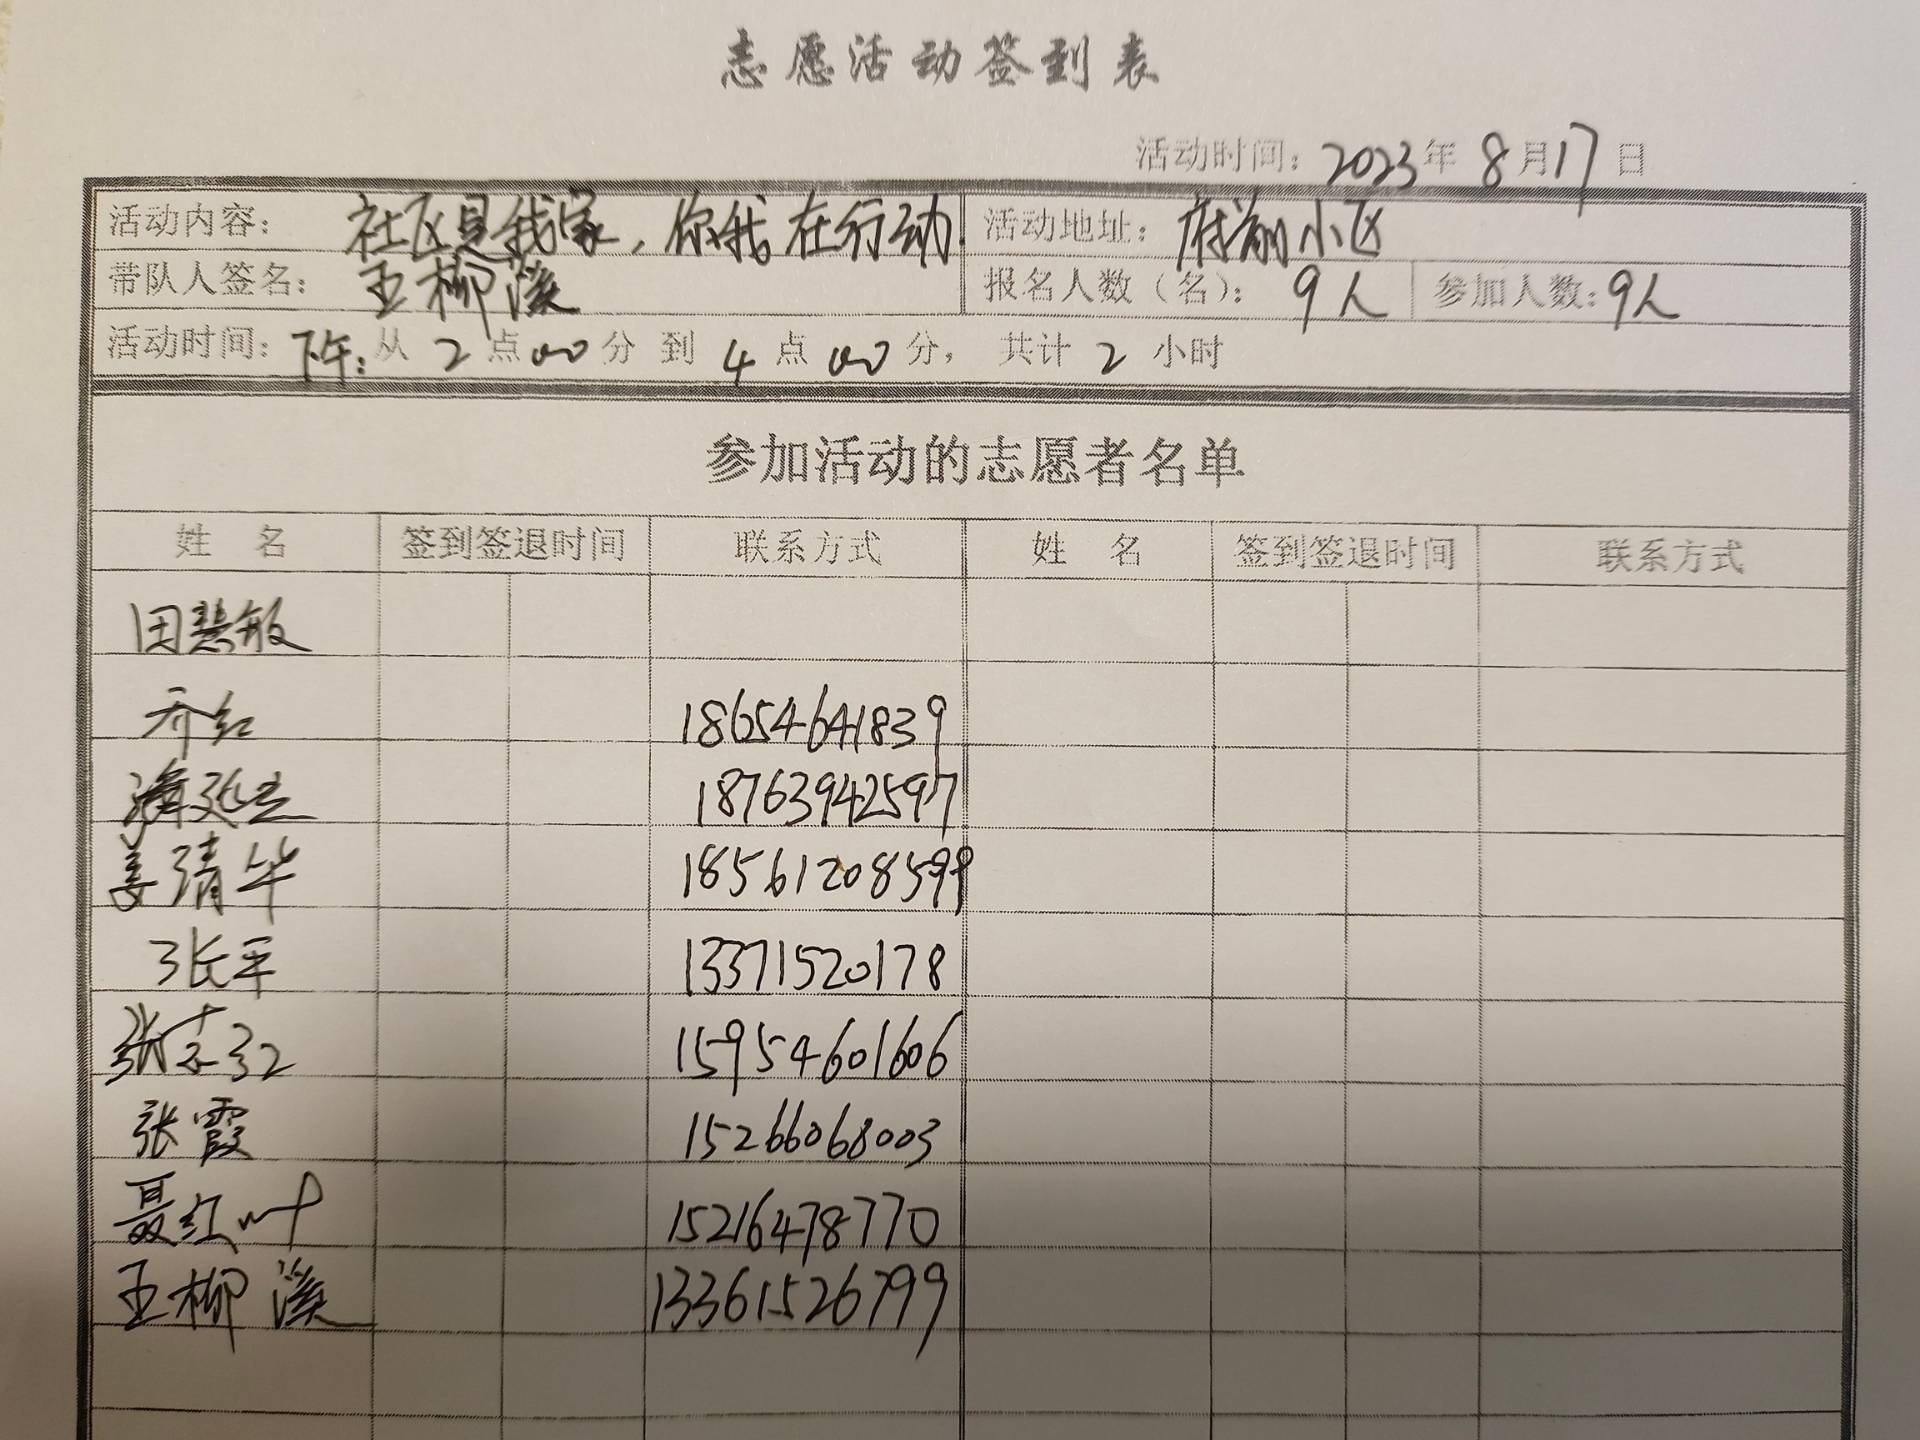 志愿活动签到表
活动时间：2023年8月17日
活动内容：社区是我家，你我在行动 活动地址：府前小区
带队人签名：王柳溪 报名人数（名）：9人 参加人数：9人
活动时间：下午：从2点00分到4点00分，共计2小时
参加活动的志愿者名单
姓 名 签到签退时间 联系方式 姓 名 签到签退时间 联系方式
田慧敏
乔红 18654641839
18763942597
姜清华 18561208599
张平 13371520178
张志弘 15954601606
张霞 15266068003
聂红叶 15216478770
王柳溪 13361526799